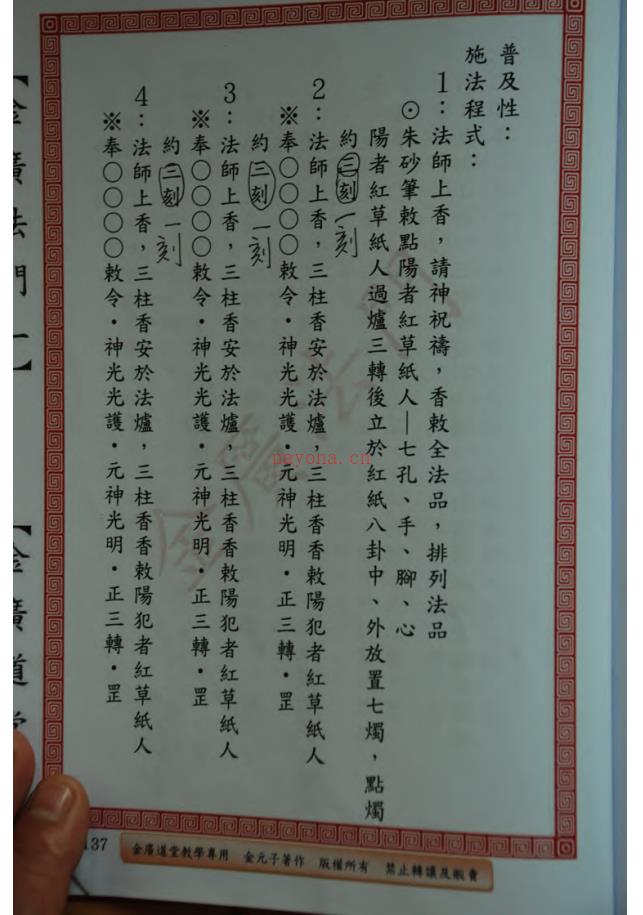 普及性：
施法程式：
1：法師上香，請神祝禱，香敕全法品，排列法品
⊙朱砂筆敕點陽者紅草紙人—七孔、手、腳、心
陽者紅草紙人過爐三轉後立於紅紙八卦中、外放置七燭，點燭
約三刻一刻
2：法師上香，三柱香安於法爐，三柱香香敕陽犯者紅草紙人
※奉〇〇〇〇敕令・神光光護・元神光明・正三轉・罡
約三刻一刻
3：法師上香，三柱香安於法爐，三柱香香敕陽犯者紅草紙人
※奉〇〇〇〇敕令・神光光護・元神光明・正三轉・罡
約三刻一刻
4：法師上香，三柱香安於法爐，三柱香香敕陽犯者紅草紙人
※奉〇〇〇〇敕令・神光光護・元神光明・正三轉・罡
【金廣法門一】
【金廣道堂
金廣法門
payona.cn
137
金廣道堂教學專用 金元子著作 版權所有 禁止轉讓及販賣